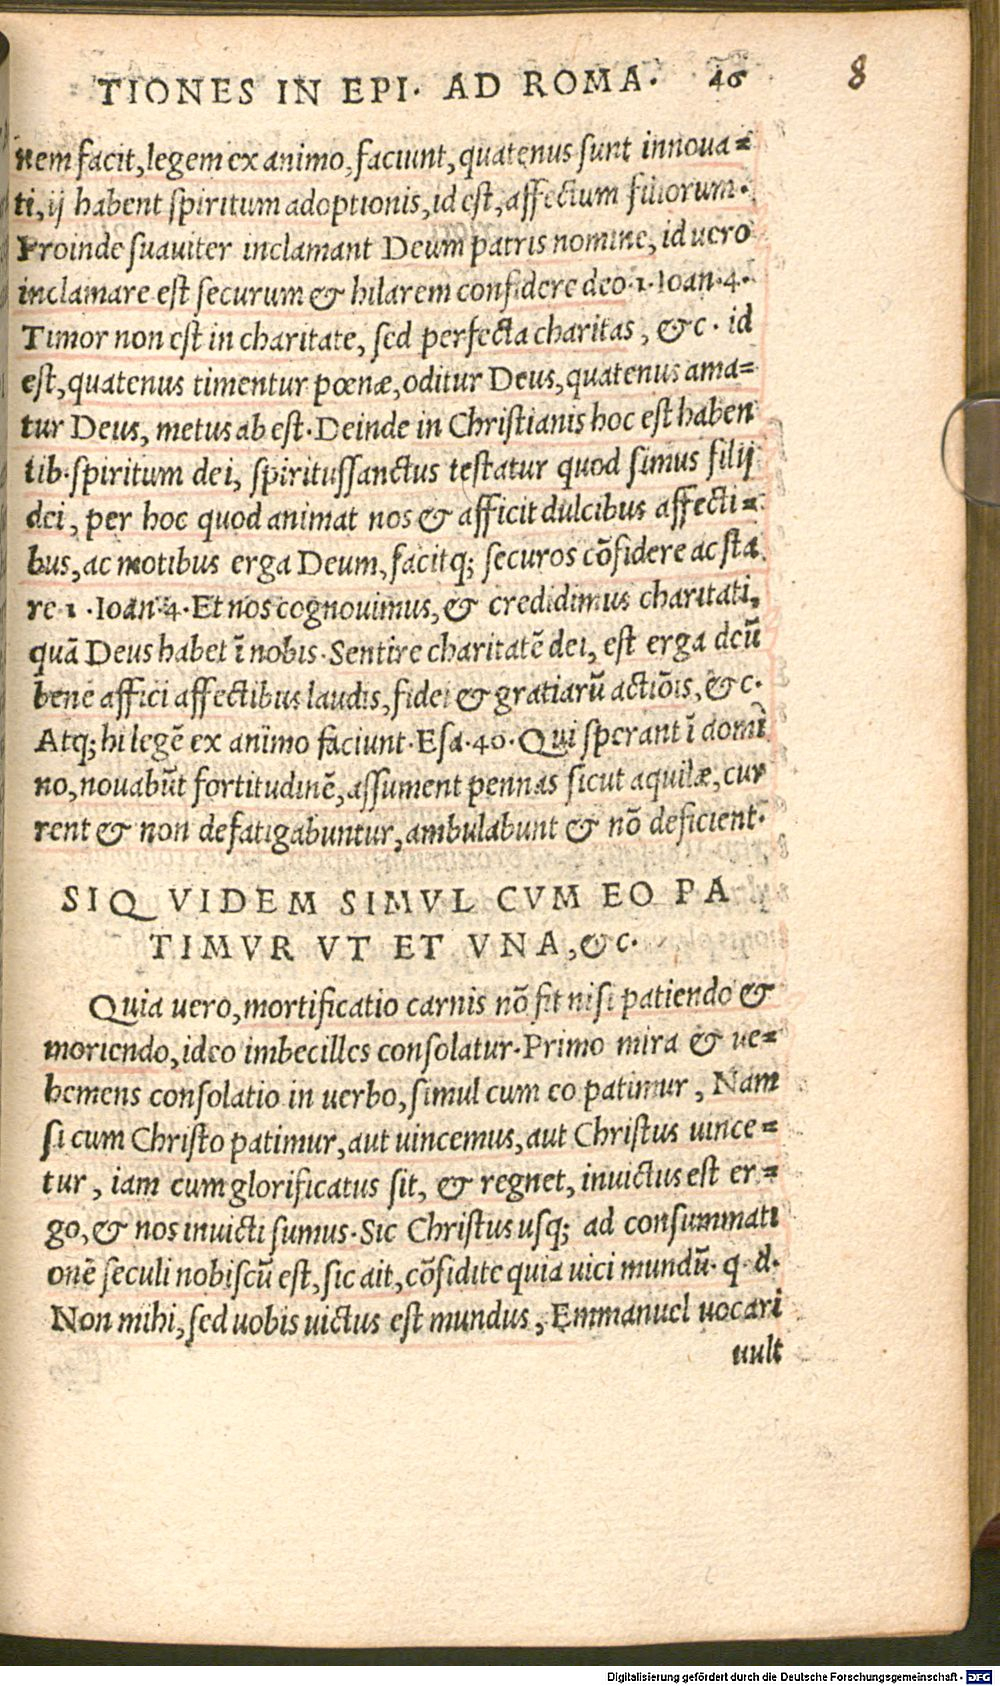 TIONES IN EPI. AD ROMA. 46 8
nem facit, legem ex animo, faciunt, quatenus sunt innoua=
ti, ij habent spiritum adoptionis, id est, affectum filiorum.
Proinde suauiter inclamant Deum patris nomine, id uero
inclamare est securum & hilarem confidere deo. 1. Ioan. 4.
Timor non est in charitate, sed perfecta charitas, &c. id
est, quatenus timentur pœnæ, oditur Deus, quatenus ama=
tur Deus, metus ab est. Deinde in Christianis hoc est haben
tib. spiritum dei, spiritussanctus testatur quod simus filij
dei, per hoc quod animat nos & afficit dulcibus affecti=
bus, ac motibus erga Deum, facitq; securos cõfidere ac sta
re 1. Ioan. 4. Et nos cognouimus, & credidimus charitati,
quã Deus habet ĩ nobis. Sentire charitatẽ dei, est erga deũ
bene affici affectibus laudis, fidei & gratiarũ actiõis, &c.
Atq; hi legẽ ex animo faciunt. Esa. 40. Qui sperant ĩ domi
no, nouabũt fortitudinẽ, assument pennas sicut aquilæ, cur
rent & non defatigabuntur, ambulabunt & nõ deficient.
SIQVIDEM SIMVL CVM EO PA
TIMVR VT ET VNA, &c.
Quia uero, mortificatio carnis nõ fit nisi patiendo &
moriendo, ideo imbecilles consolatur. Primo mira & ue=
hemens consolatio in uerbo, simul cum eo patimur, Nam
si cum Christo patimur, aut uincemus, aut Christus uince=
tur, iam cum glorificatus sit, & regnet, inuictus est er=
go, & nos inuicti sumus. Sic Christus usq; ad consummati
onẽ seculi nobiscũ est, sic ait, cõfidite quia uici mundũ. q. d.
Non mihi, sed uobis uictus est mundus, Emmanuel uocari
uult
Digitalisierung gefördert durch die Deutsche Forschungsgemeinschaft - DFG